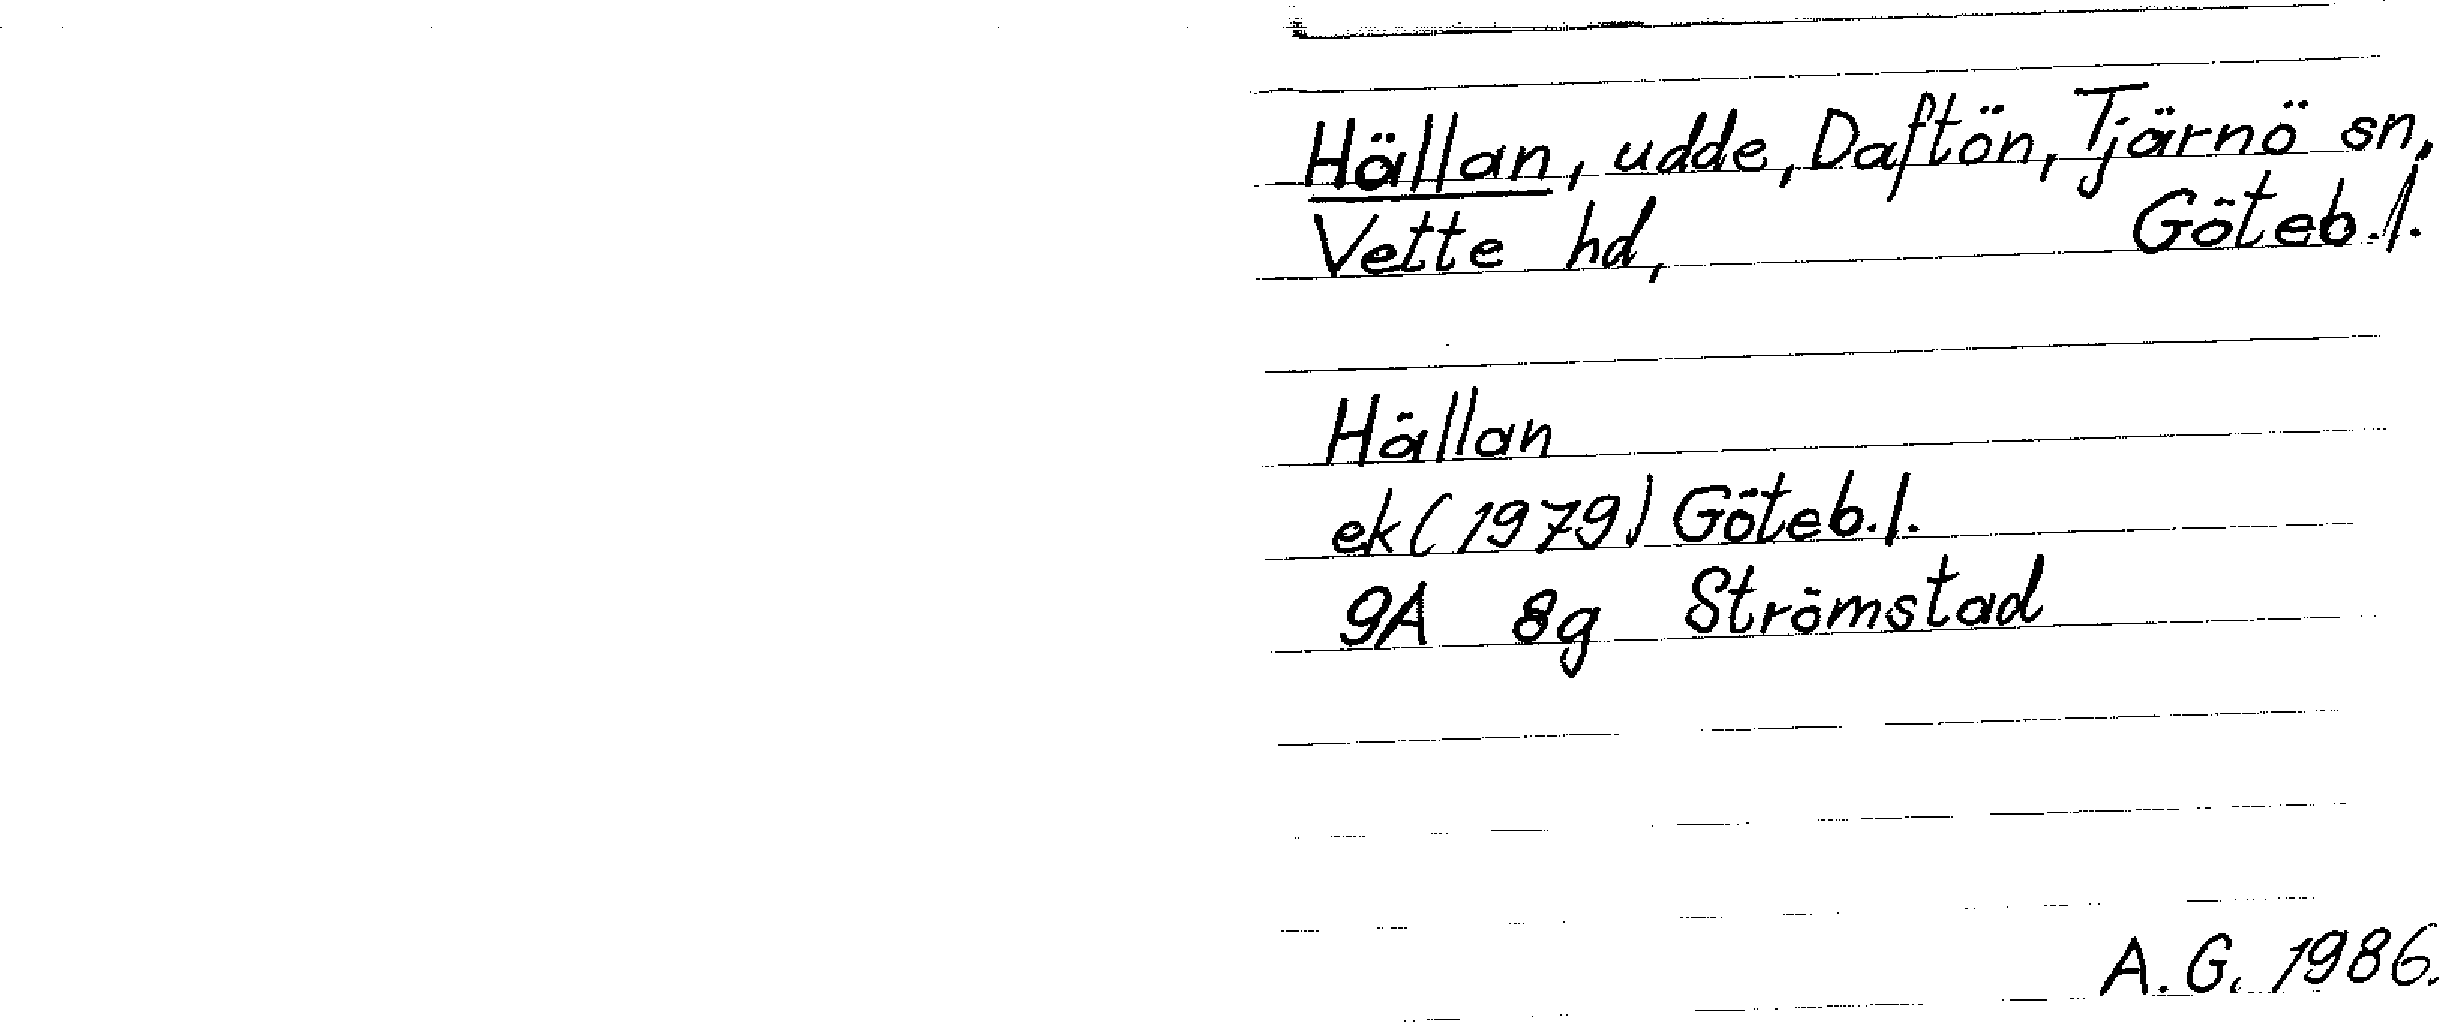 Hällan, udde, Daftön, Tjärnö sn,
Vette hd, Göteb.l.
Hällan
ek (1979) Göteb.l.
9A 8g Strömstad
A.G. 1986.